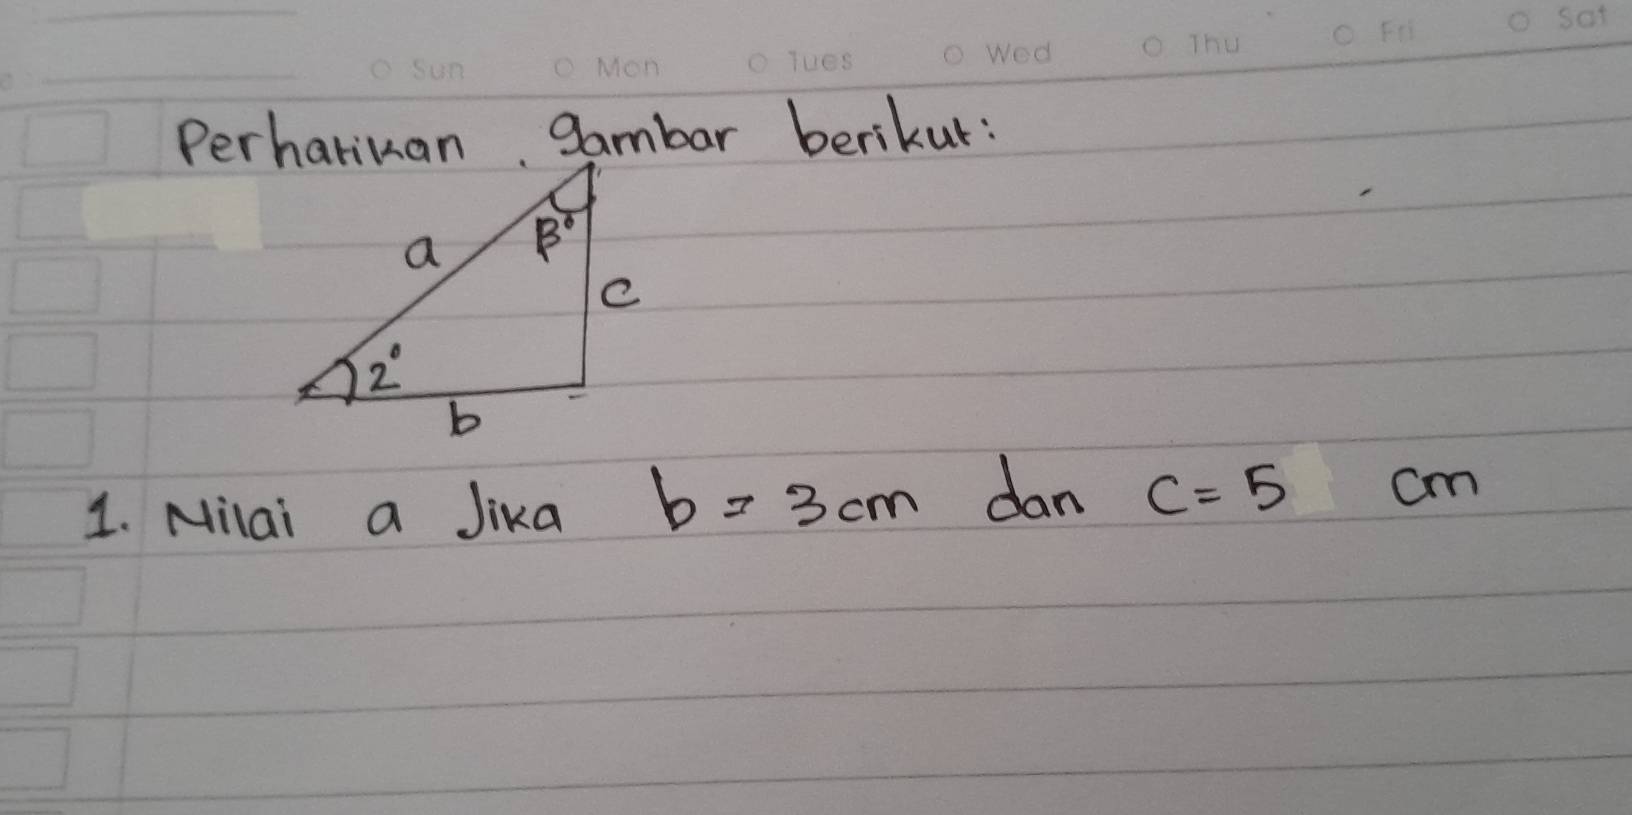 Sun Mon Tues Wed Thu Fri Sat
Perhatikan . gambar berikut:
a
β°
c
2°
b
1. Nilai a Jika b = 3 cm dan c = 5 cm